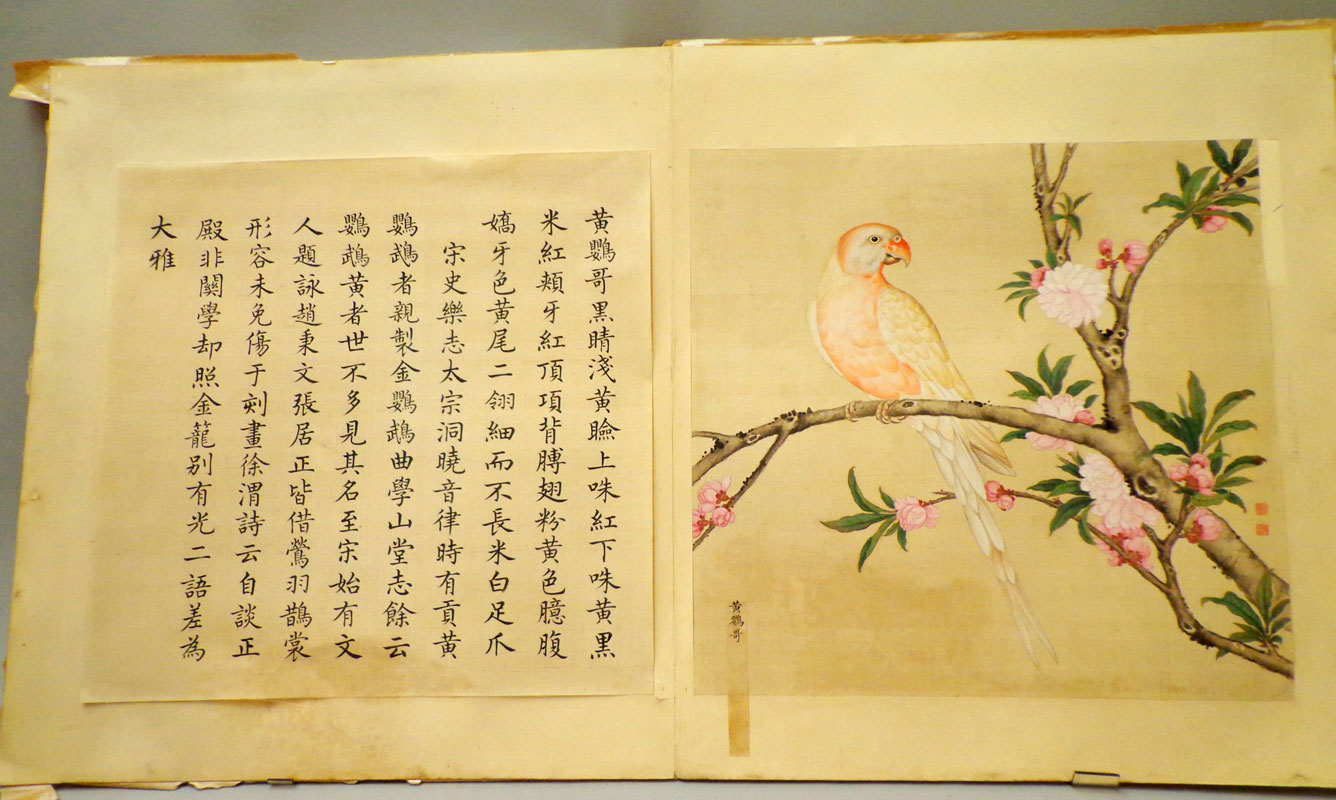 黄鸚哥
黄鸚哥黑睛淺黄瞼上咮紅下咮黄黑
米紅頰牙紅頂項背膊翅粉黄色臆腹
嬌牙色黄尾二翎細而不長米白足爪
宋史樂志太宗洞曉音律時有貢黄
鸚鵡者親製金鸚鵡曲學山堂志餘云
鸚鵡黄者世不多見其名至宋始有文
人題詠趙秉文張居正皆借鶯羽鵲裳
形容未免傷于刻畫徐渭詩云自談正
殿非闗學却照金籠别有光二語差為
大雅